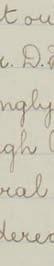 t ou
. D. 
ngly
gh
ral
dered